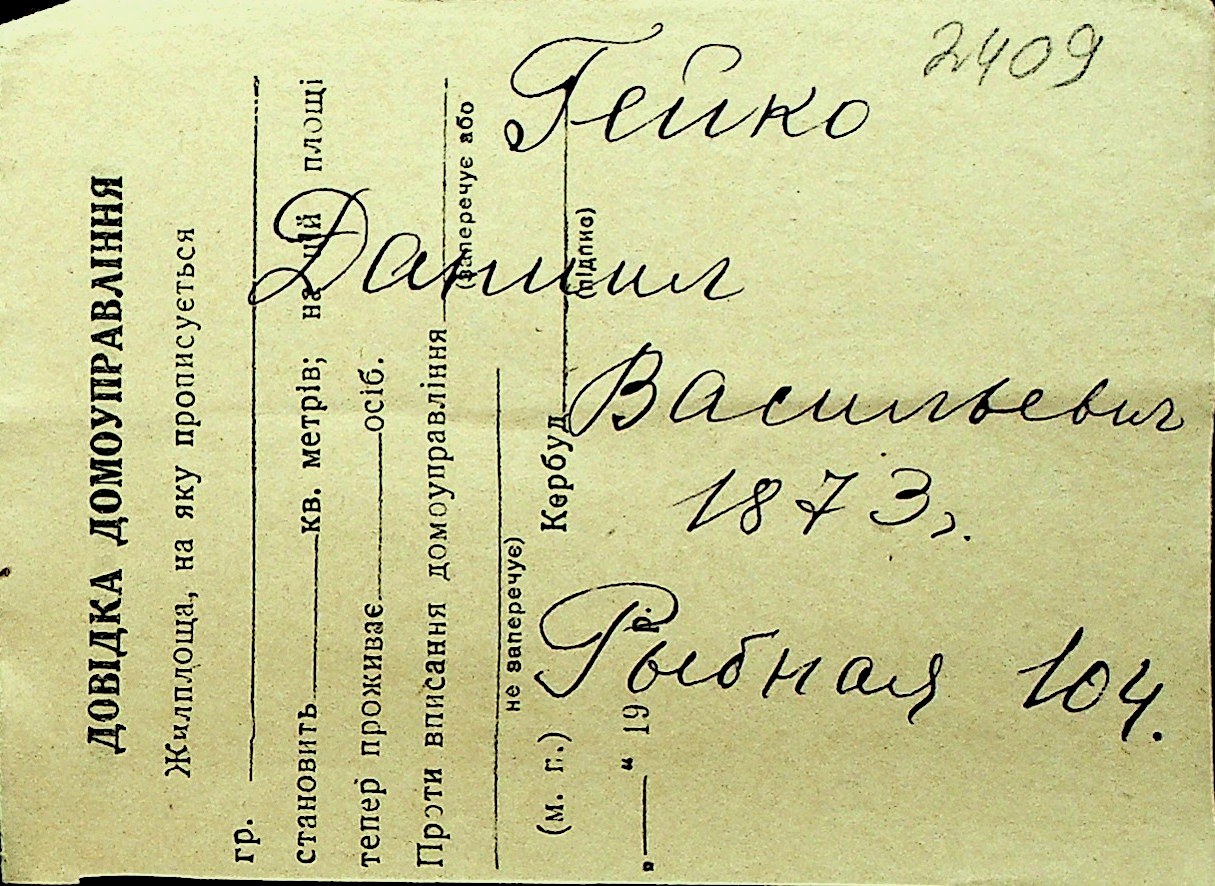 2409
Гейко
Даниил
Васильевич
1873 г.
Рыбная 104.
ДОВІДКА ДОМОУПРАВЛІННЯ
Жилплоща, на яку прописується
гр.
становить кв. метрів; на цій площі
тепер проживає осіб.
Проти вписання домоуправління
(заперечує або
не заперечує)
(м. г.) Кербуд
(підпис)
„ “ 19 р.